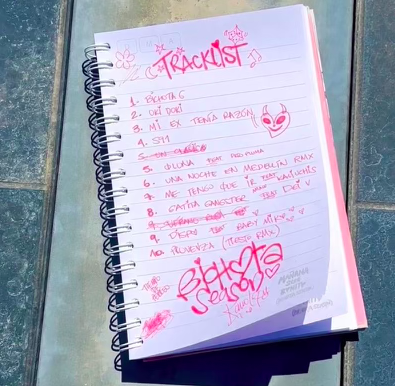 TRACKLIST
1. BICHOTA G
2. OKI DOKI
3. MI EX TENÍA RAZÓN
4. S91
5. QLONA FEAT PESO PLUMA
6. UNA NOCHE EN MEDELLÍN RMX
7. ME TENGO QUE IR FEAT KALIUCHIS
8. GATITA GANGSTER FEAT DEI V
9. DISPO FEAT BABY MIKO
10. PROVENZA (TIESTO RMX)
BICHOTA
SEASON
MAÑANA
SERÁ
BONITO